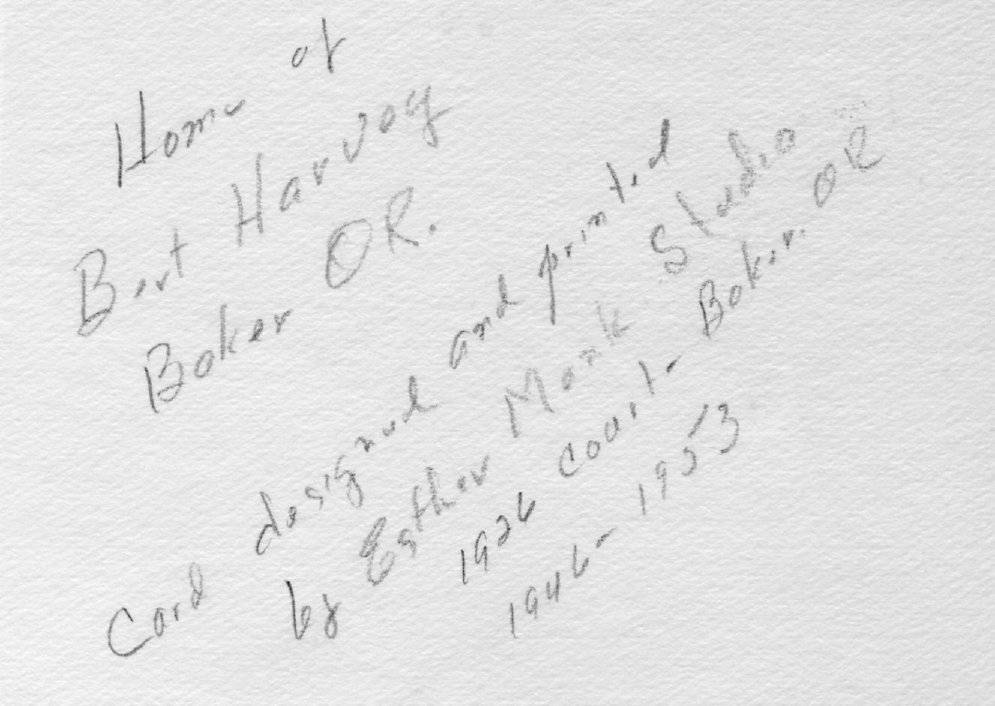 Home of
Bert Harvey
Baker OR.
Card designed and printed
by Esther Monk Studio
1926 Court - Baker. OR
1946 - 1953